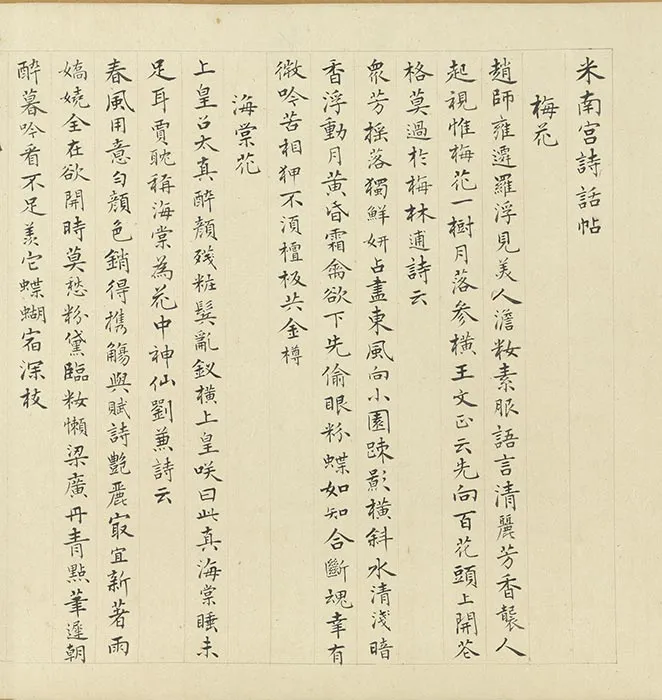 米南宮詩話帖
梅花
趙師雍遷羅浮見美人澹籹素服語言清麗芳香襲人
起視惟梅花一樹月落参橫王文正云先向百花頭上開花
格莫過於梅林逋詩云
衆芳揺落獨鮮妍占盡東風向小園疎影橫斜水清淺暗
香浮動月黃昏霜禽欲下先偷眼粉蝶如知合斷魂幸有
微吟苦相狎不湏檀板共金樽
海棠花
上皇召太真醉顔殘粧鬓亂釵橫上皇咲曰此真海棠睡未
足耳賈耽稱海棠為花中神仙劉兼詩云
春風用意勻顔色銷得携觴與賦詩艶麗㝡宜新著雨
嬌嬈全在欲開時莫愁粉黛臨籹懶梁廣丹青點筆遲朝
醉暮吟看不足羨它蝶蝴宿深枝